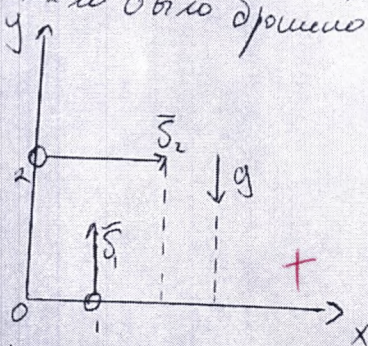 было брошено
y
S̄₂
2
g
S̄₁
+
0
x